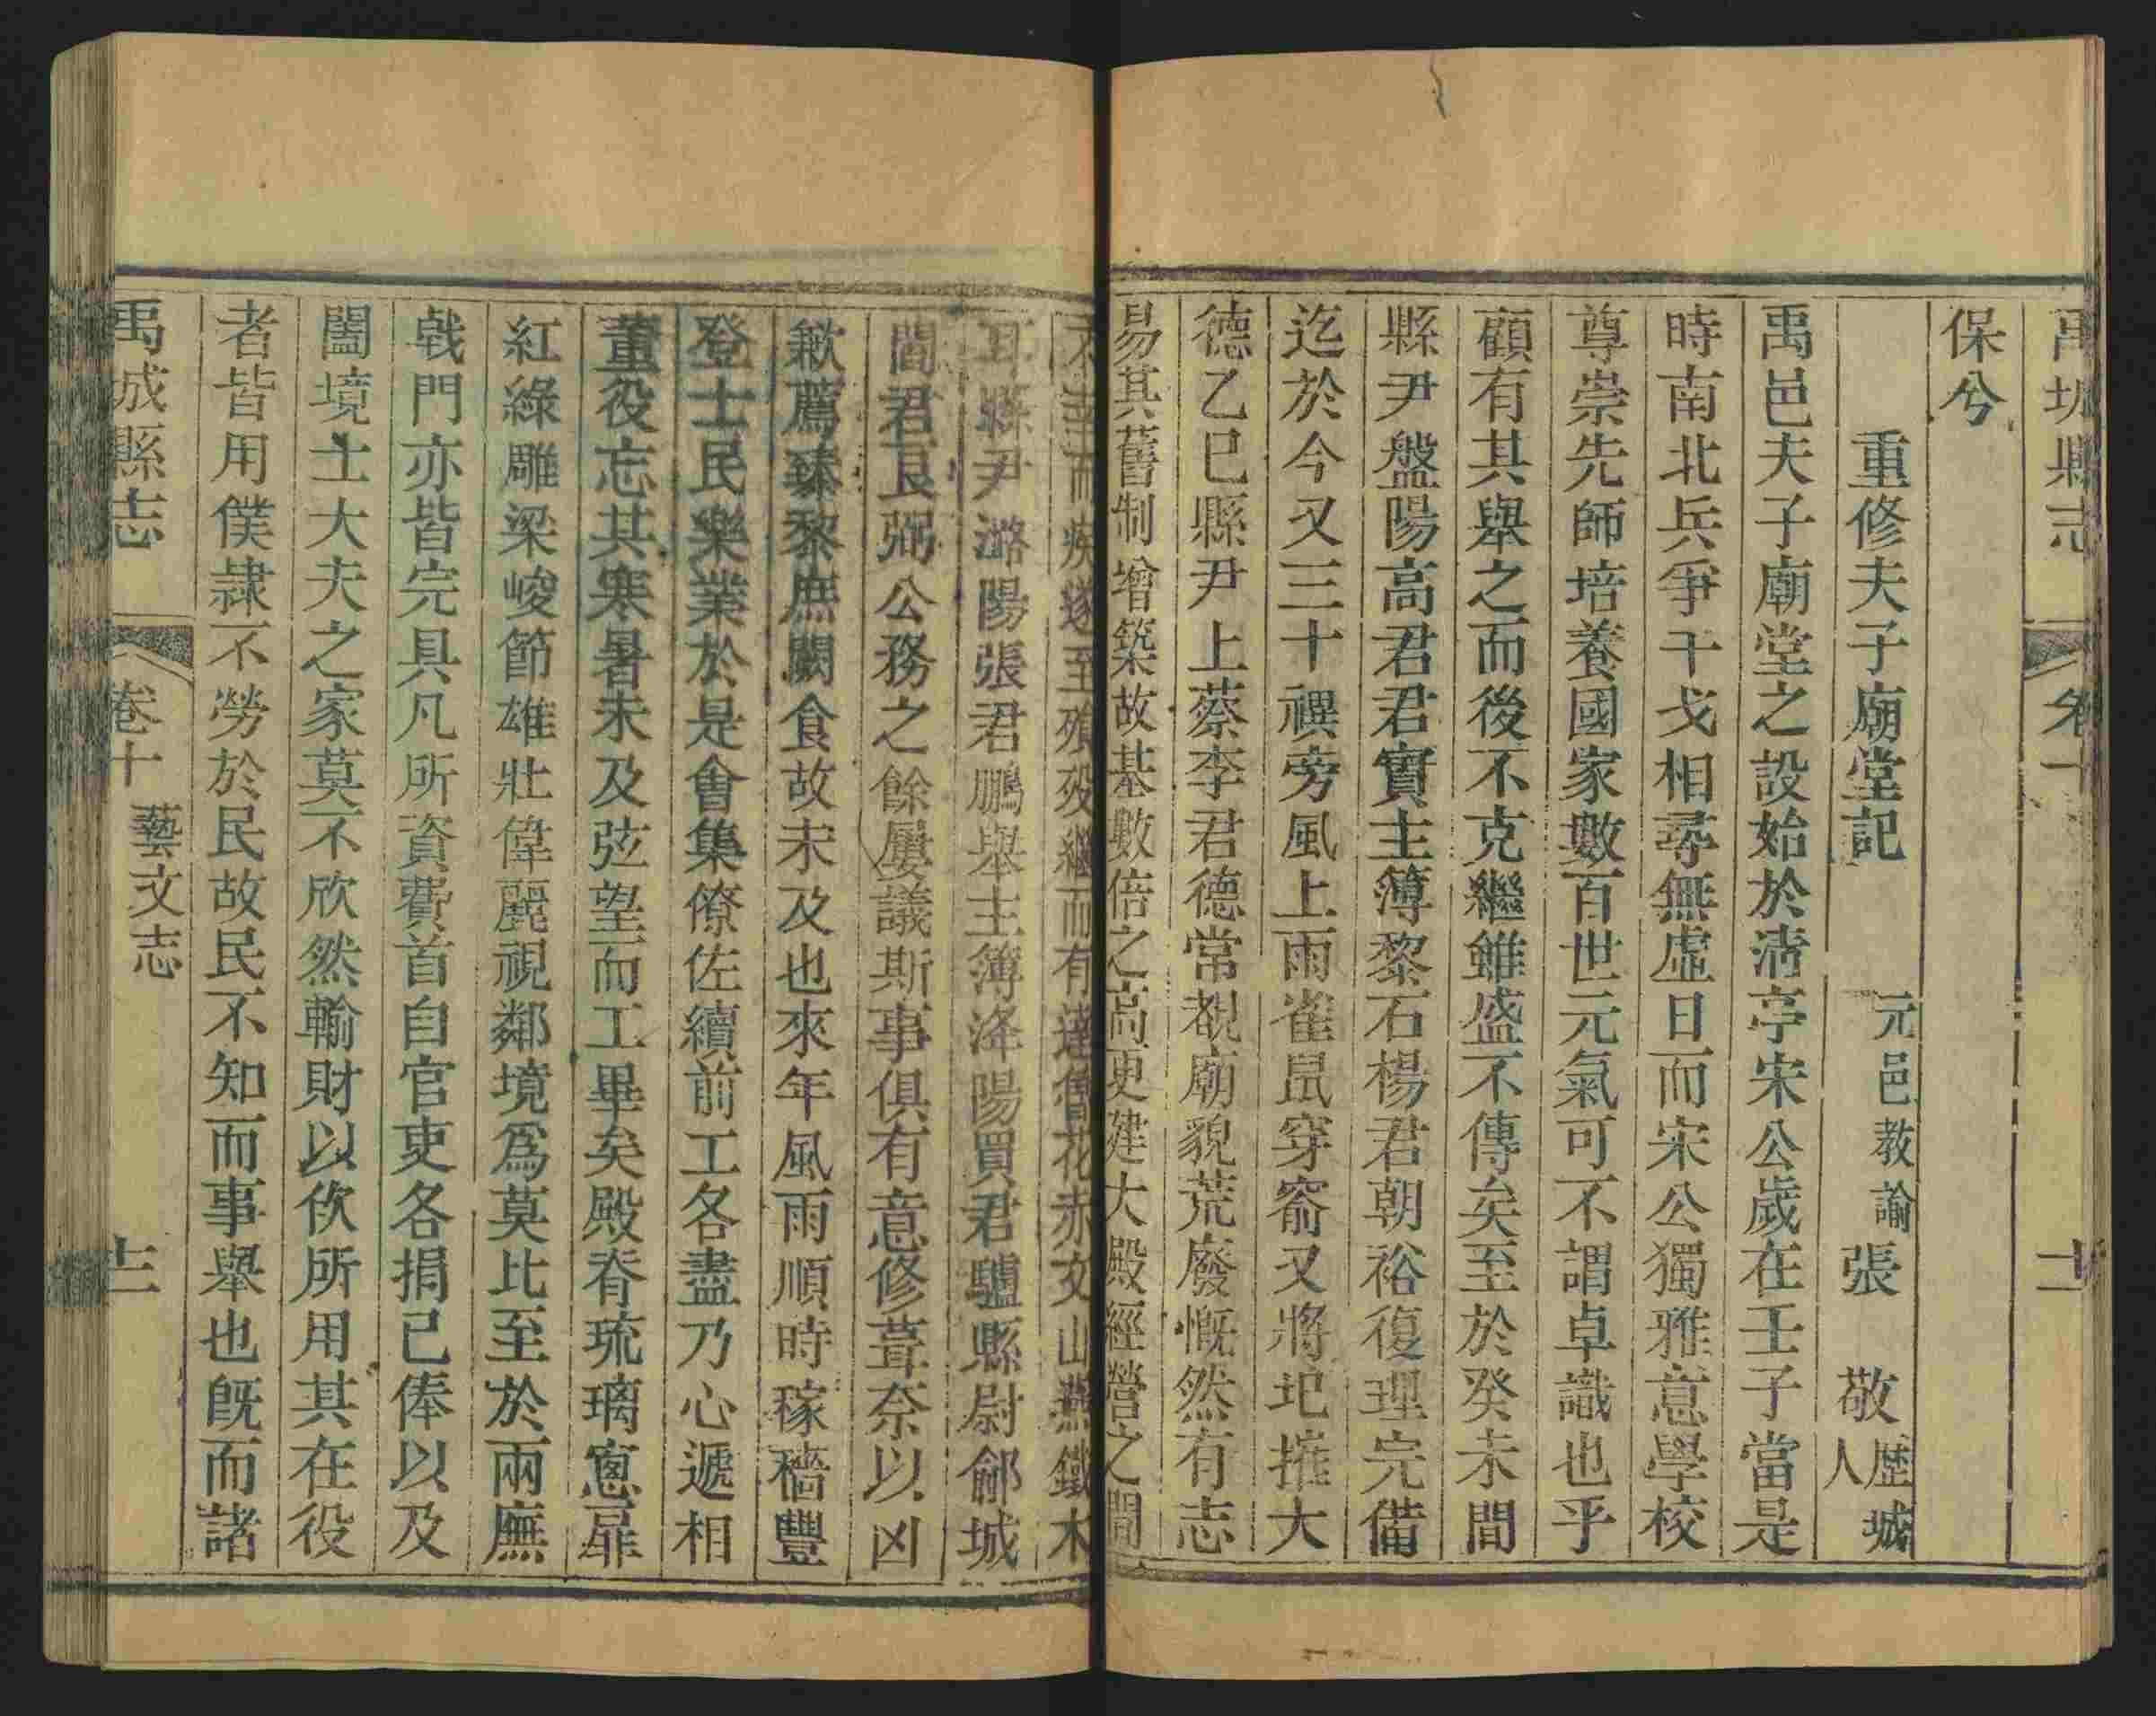 禹城縣志 卷十 十一
保兮
重修夫子廟堂記 元邑教諭張 敬 歷城人
禹邑夫子廟堂之設始於淸亭宋公歲在壬子當是
時南北兵爭干戈相尋無虛日而宋公獨雅意學校
尊崇先師培養國家數百世元氣可不謂卓識也乎
顧有其舉之而後不克繼雖盛不傳矣至於癸未間
縣尹盤陽高君君實主簿黎石楊君朝裕復理完備
迄於今又三十禩旁風上雨雀鼠穿窬又將圯摧大
德乙巳縣尹上蔡李君德常覩廟貌荒廢慨然有志
易其舊制增築故基數倍之高更建大殿經營之間
不幸而疾遂至殞歿繼而有達魯花赤女山燕鐵木
耳縣尹潞陽張君鵬舉主簿洚陽買君驢縣尉鄃城
閻君良弼公務之餘屢議斯事俱有意修葺奈以凶
歉薦臻黎庶闕食故未及也來年風雨順時稼穡豐
登士民樂業於是會集僚佐續前工各盡乃心遞相
董役忘其寒暑未及弦望而工畢矣殿脊琉璃窻扉
紅綠雕梁峻節雄壯偉麗視鄰境爲莫比至於兩廡
戟門亦皆完具凡所資費首自官吏各捐己俸以及
闔境士大夫之家莫不欣然輸財以佽所用其在役
者皆用僕隷不勞於民故民不知而事舉也旣而諸
禹城縣志 卷十 藝文志 十二